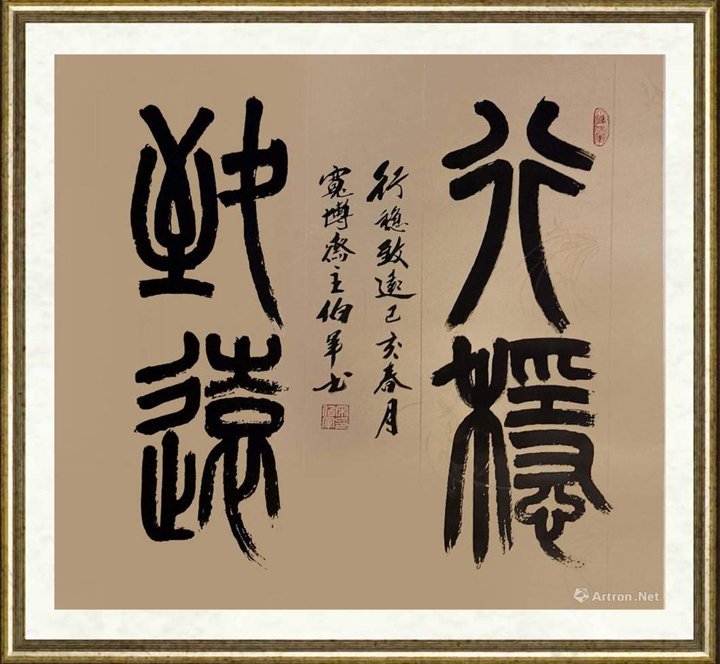 行穩
致遠
行穩致遠己亥春月
寬博齋主伯軍书
Artron.Net